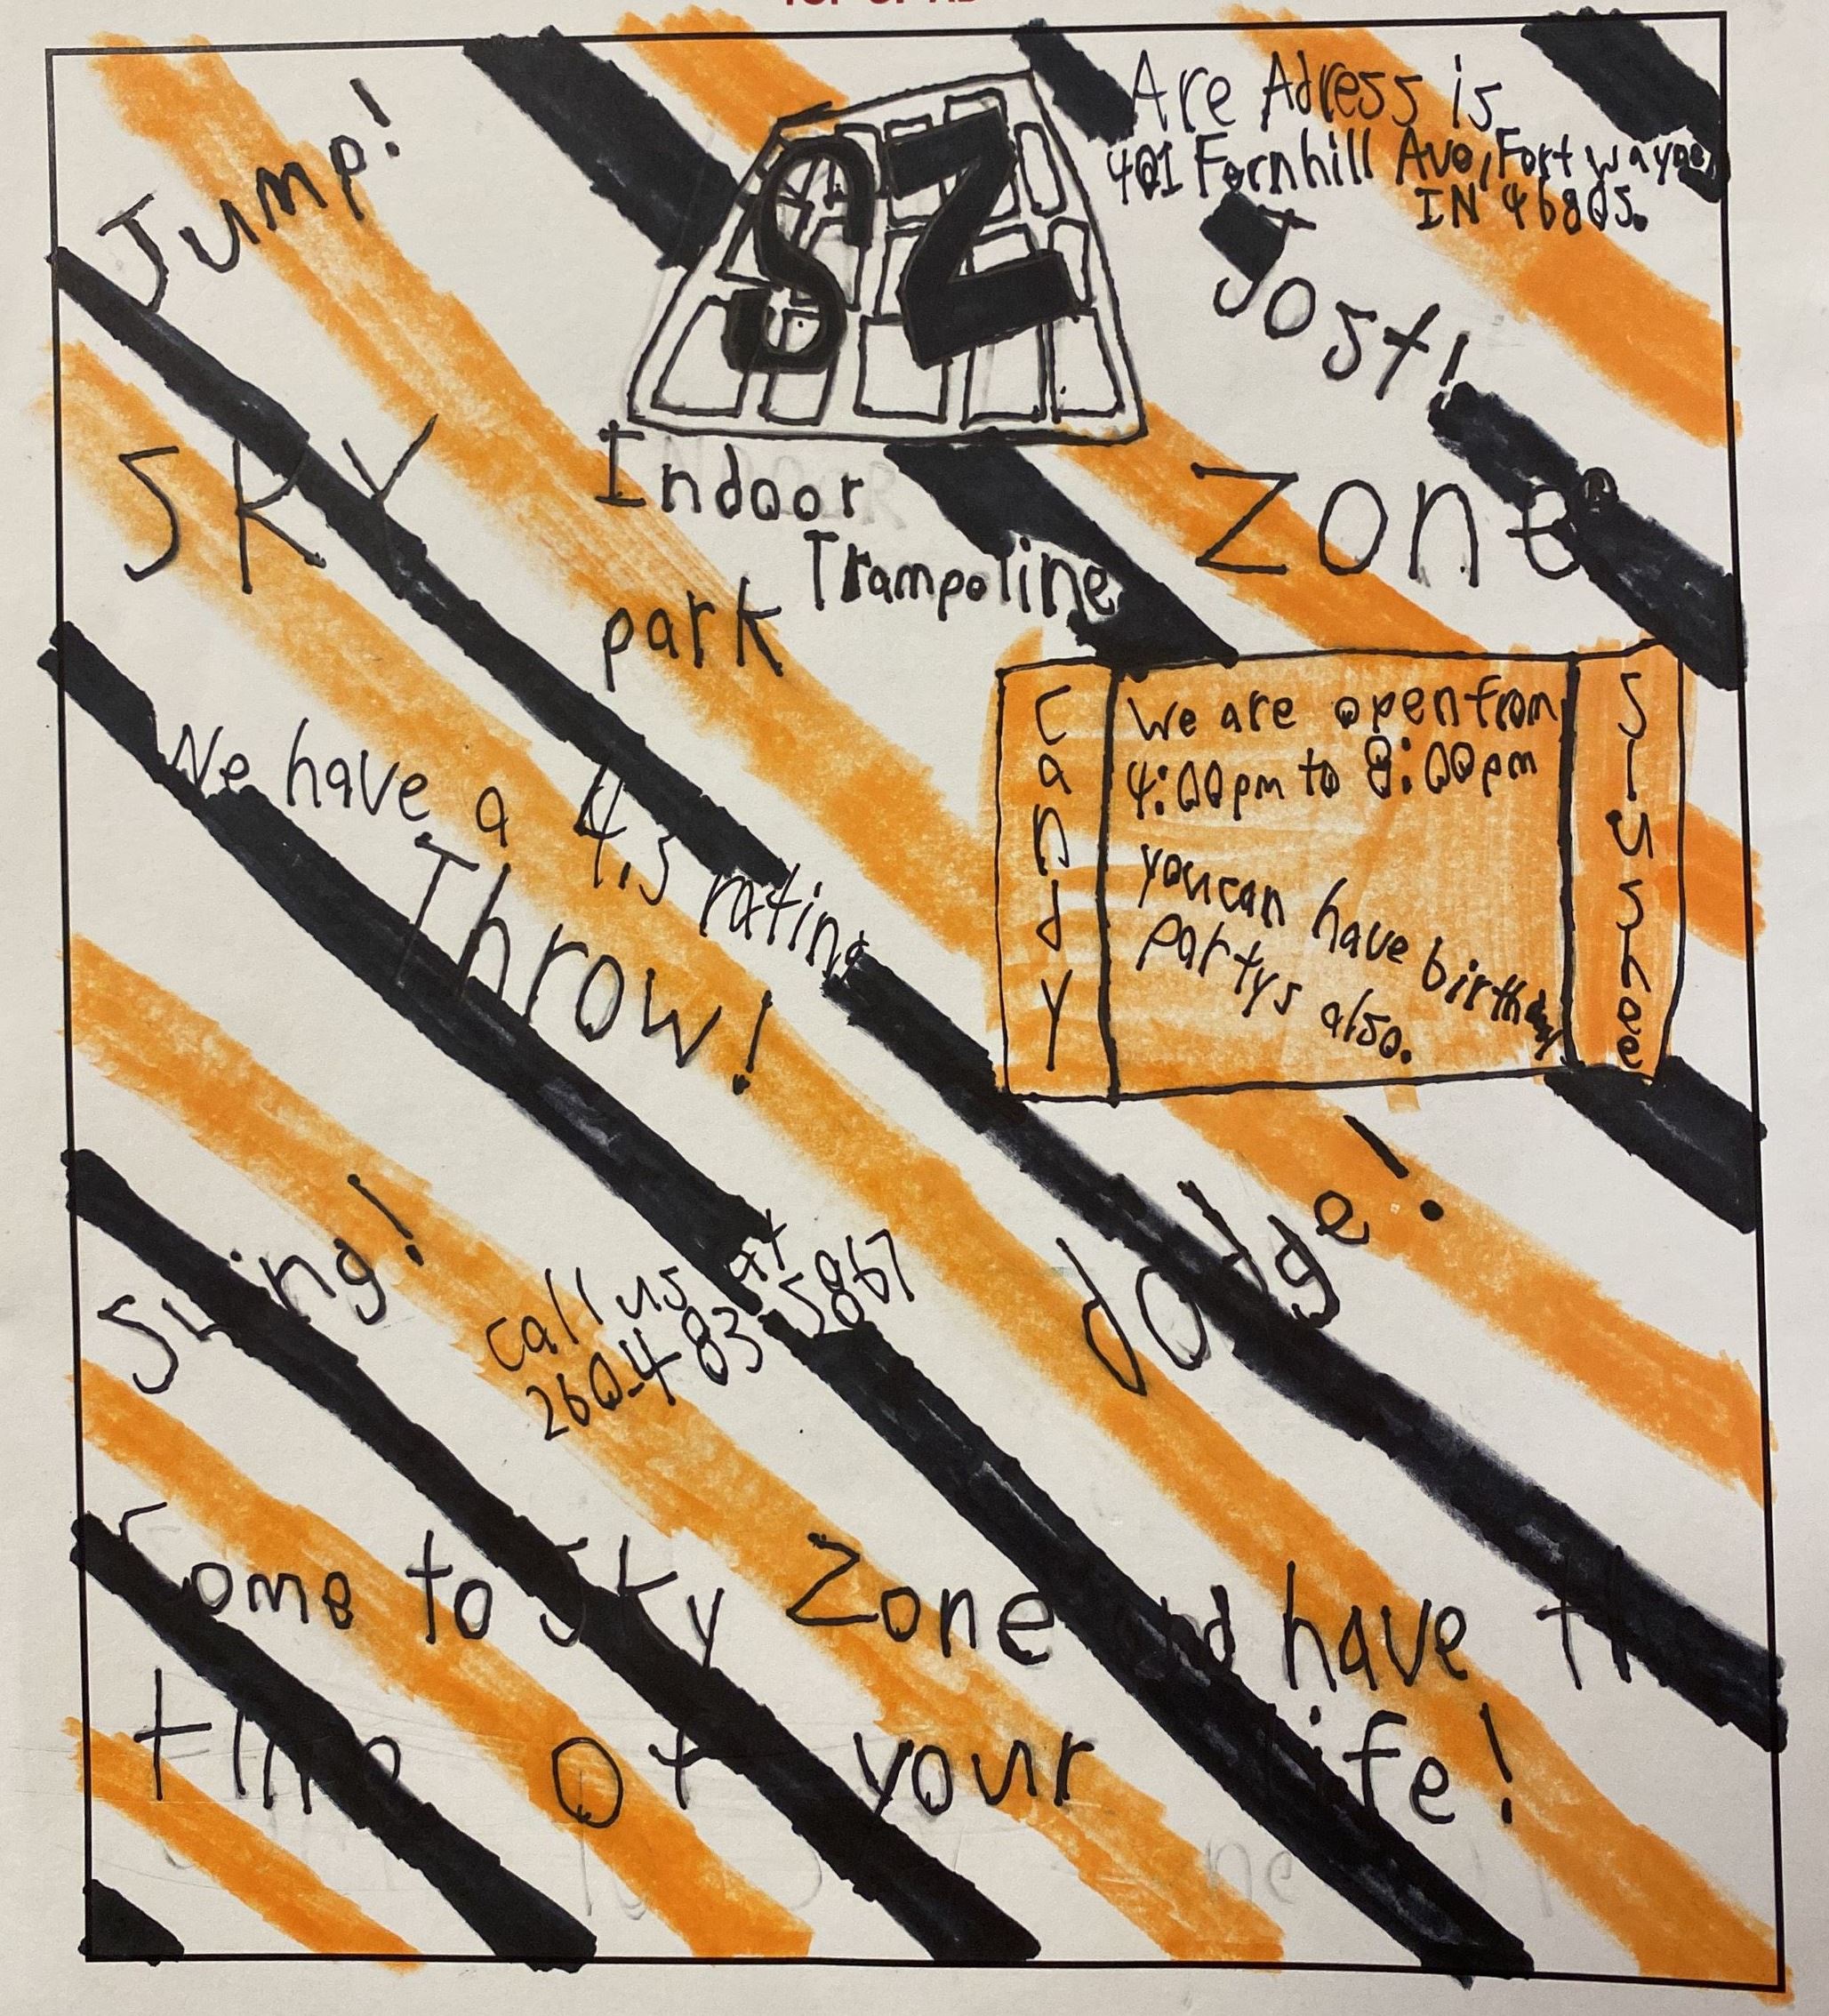 Are Adress is
401 Fernhill Ave, Fort wayne,
IN 46805.
Jump!
SZ
Jost!
SKY
zone
Indoor
Trampoline
park
We have a 4.3 rating
Throw!
Candy
We are open from
4:00pm to 8:00pm
you can have birthday
partys also.
Slushee
Swing!
call us at
260-483-5867
dodge!
Come to Sky Zone and have th
time of your life!